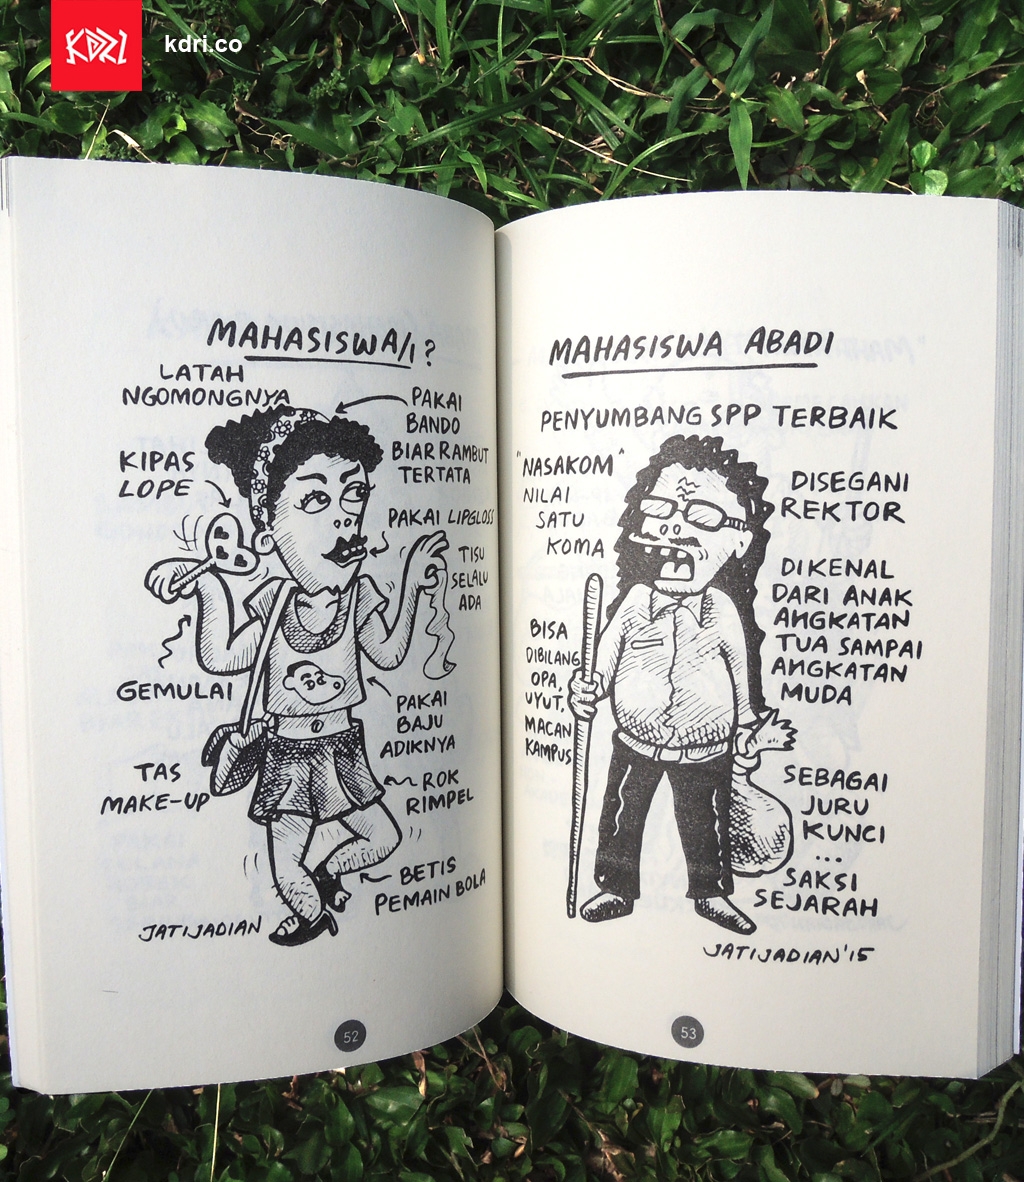 KDRI
kdri.co
MAHASISWA/i?
LATAH
NGOMONGNYA
PAKAI
BANDO
BIAR RAMBUT
TERTATA
KIPAS
LOPE
PAKAI LIPGLOSS
TISU
SELALU
ADA
GEMULAI
PAKAI
BAJU
ADIKNYA
TAS
MAKE-UP
ROK
RIMPEL
BETIS
PEMAIN BOLA
JATIJADIAN
52
MAHASISWA ABADI
PENYUMBANG SPP TERBAIK
"NASAKOM"
NILAI
SATU
KOMA
DISEGANI
REKTOR
DIKENAL
DARI ANAK
ANGKATAN
TUA SAMPAI
ANGKATAN
MUDA
BISA
DIBILANG
OPA,
UYUT,
MACAN
KAMPUS
SEBAGAI
JURU
KUNCI
...
SAKSI
SEJARAH
JATIJADIAN'15
53